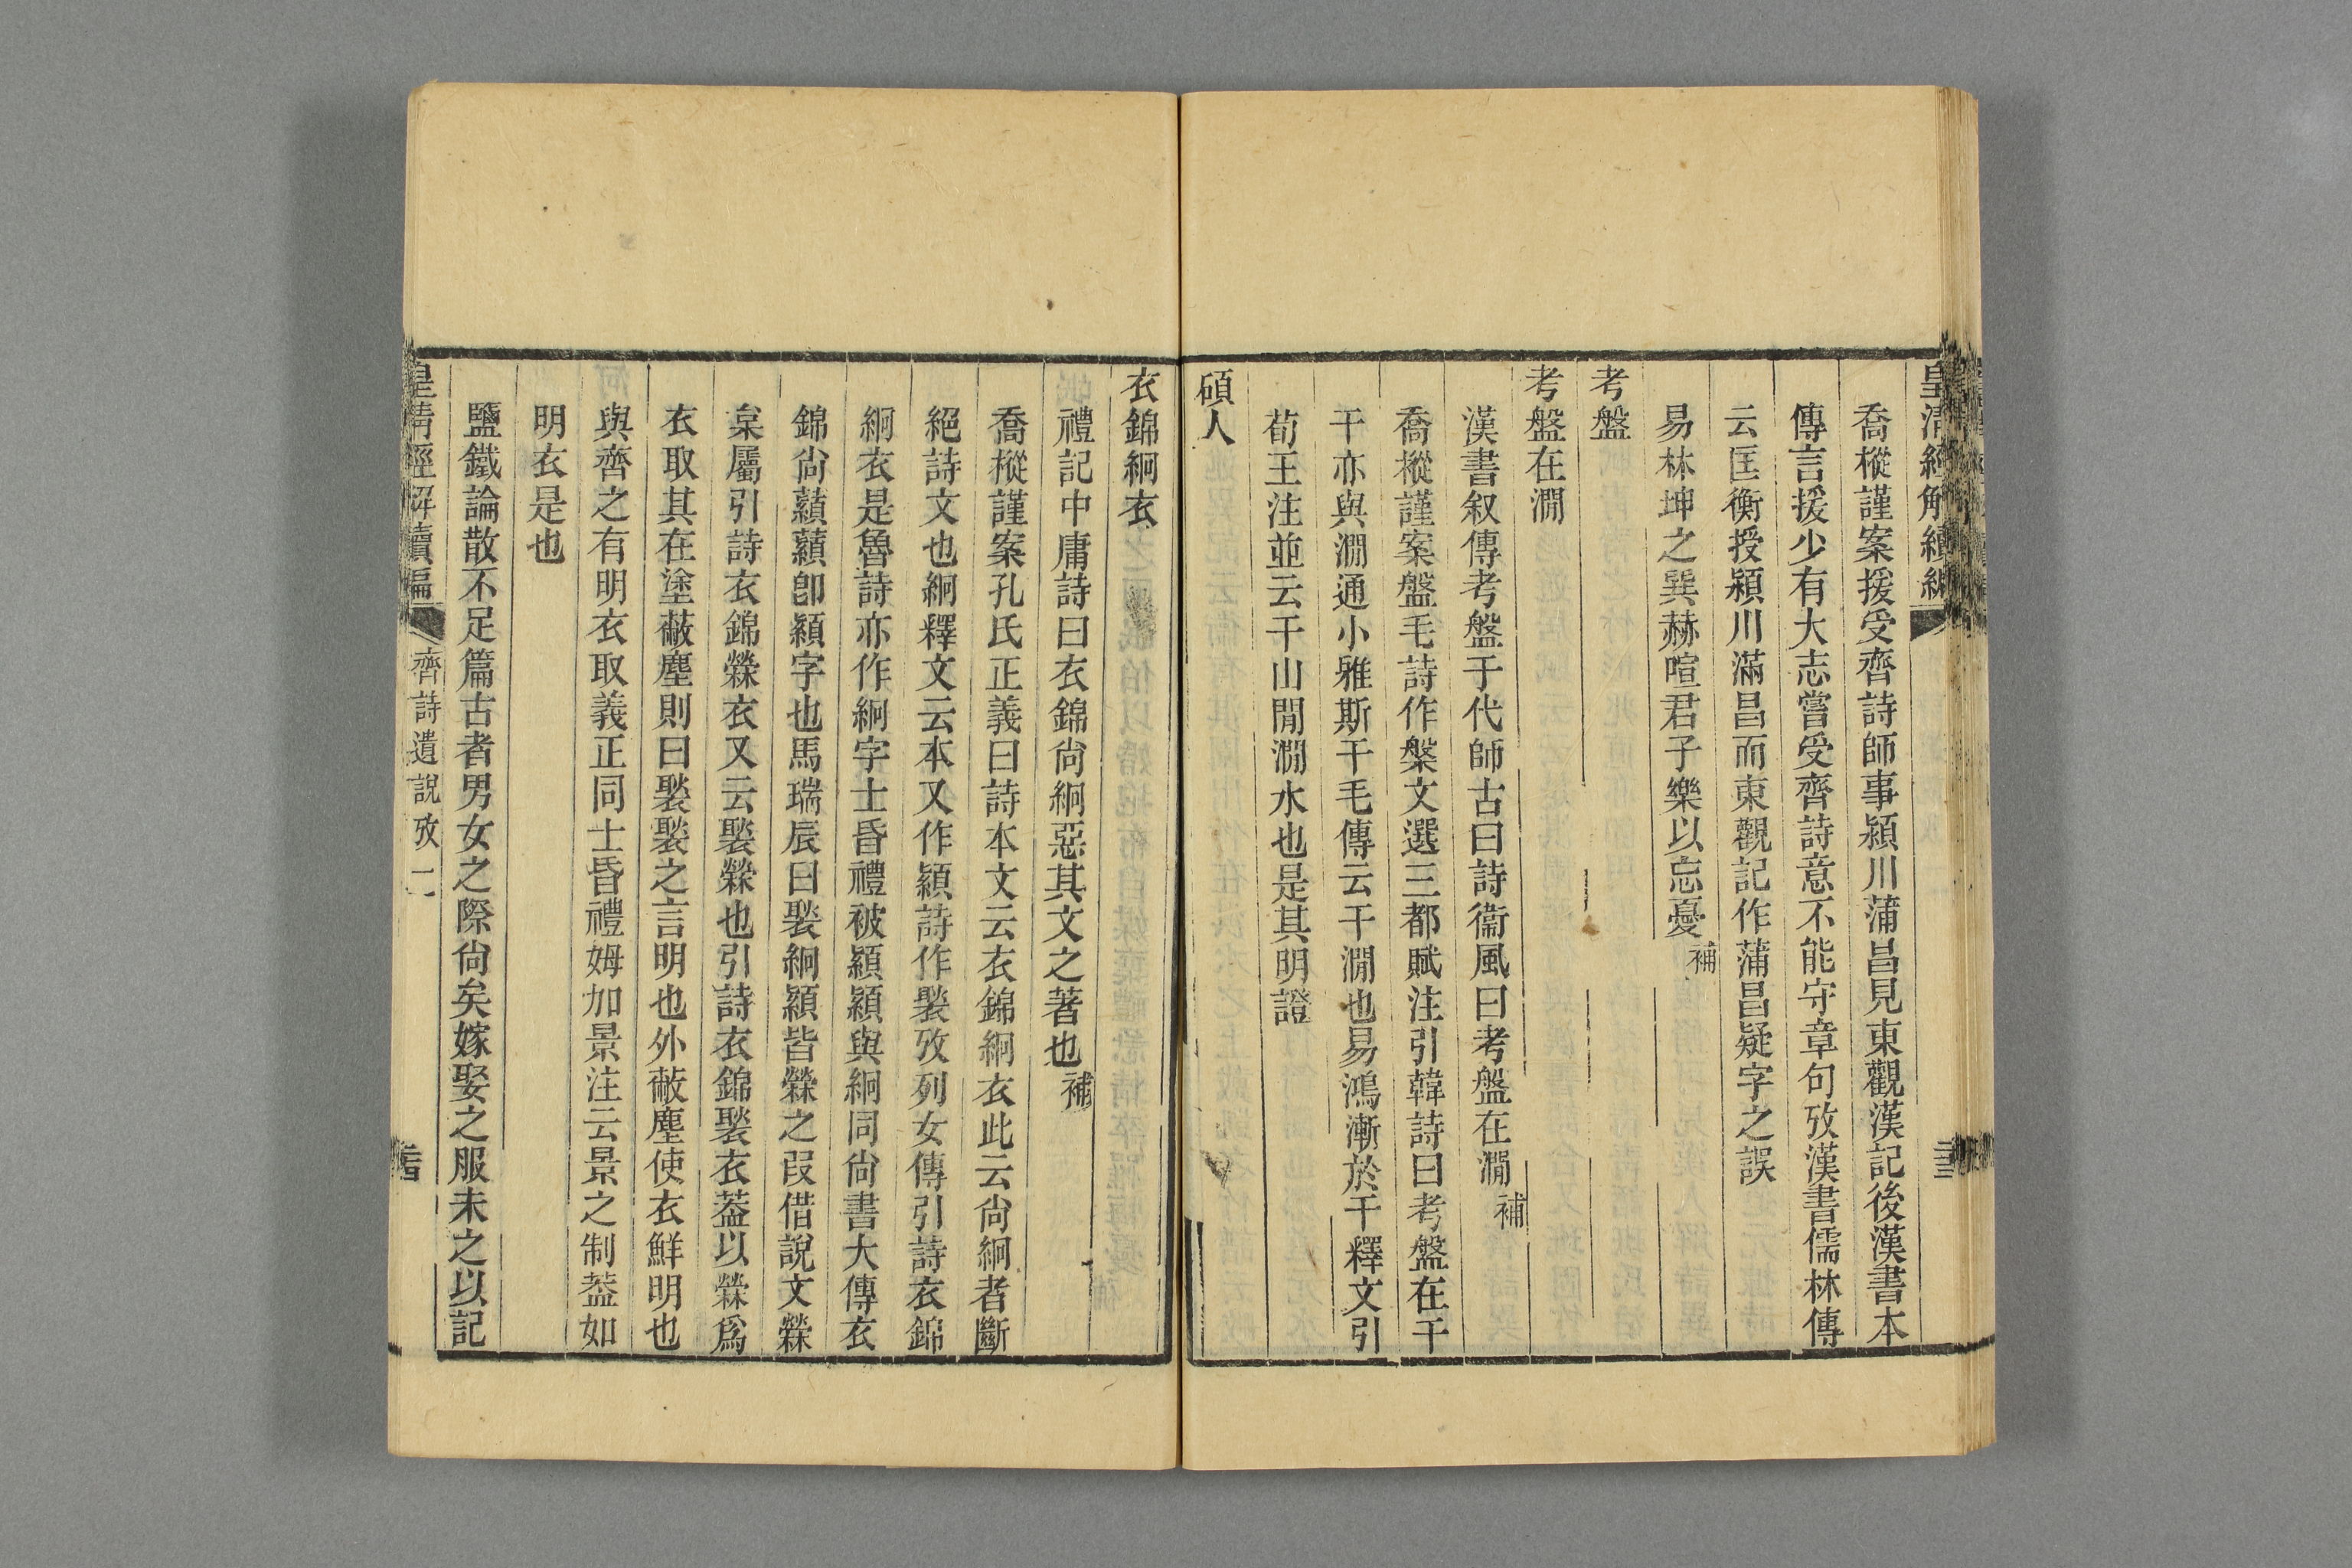 皇清經解續編
喬樅謹案援受齊詩師事潁川蒲昌見東觀漢記後漢書本
傳言援少有大志嘗受齊詩意不能守章句攷漢書儒林傳
云匡衡授潁川滿昌而東觀記作蒲昌疑字之誤
易林坤之巽赫喧君子樂以忘憂補
考盤
考盤在澗
漢書叙傳考盤于代師古曰詩衞風曰考盤在澗補
喬樅謹案盤毛詩作槃文選三都賦注引韓詩曰考盤在干
干亦與澗通小雅斯干毛傳云干澗也易鴻漸於干釋文引
荀王注並云干山閒澗水也是其明證
碩人
衣錦絅衣
禮記中庸詩曰衣錦尙絅惡其文之著也補
喬樅謹案孔氏正義曰詩本文云衣錦絅衣此云尙絅者斷
絕詩文也絅釋文云本又作顈詩作褧攷列女傳引詩衣錦
絅衣是魯詩亦作絅字士昏禮被顈顈與絅同尙書大傳衣
錦尙蘔蘔卽顈字也馬瑞辰曰褧絅顈皆檾之叚借說文檾
枲屬引詩衣錦檾衣又云褧檾也引詩衣錦褧衣葢以檾爲
衣取其在塗蔽塵則曰褧褧之言明也外蔽塵使衣鮮明也
與齊之有明衣取義正同士昏禮姆加景注云景之制葢如
明衣是也
鹽鐵論散不足篇古者男女之際尙矣嫁娶之服未之以記
皇清經解續編　齊詩遺說攷二